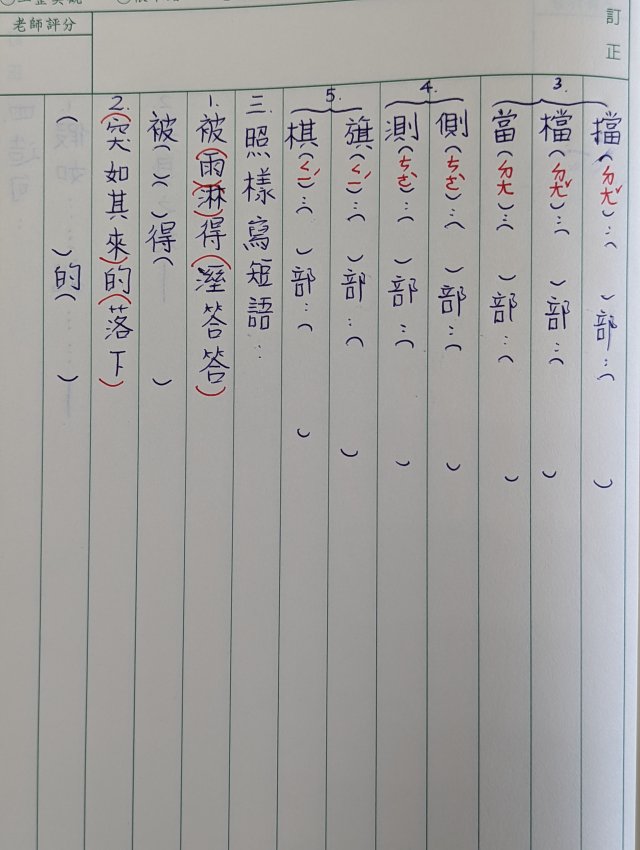 訂正
老師評分
3.
擋(ㄉㄤˇ)：( )部：( )
檔(ㄉㄤˇ)：( )部：( )
當(ㄉㄤ)：( )部：( )
4.
側(ㄘㄜˋ)：( )部：( )
測(ㄘㄜˋ)：( )部：( )
5.
旗(ㄑㄧˊ)：( )部：( )
棋(ㄑㄧˊ)：( )部：( )
三.照樣寫短語：
1.被(雨)(淋)得(溼答答)
被( )( )得( )
2.(突如其來)的(落下)
( )的( )